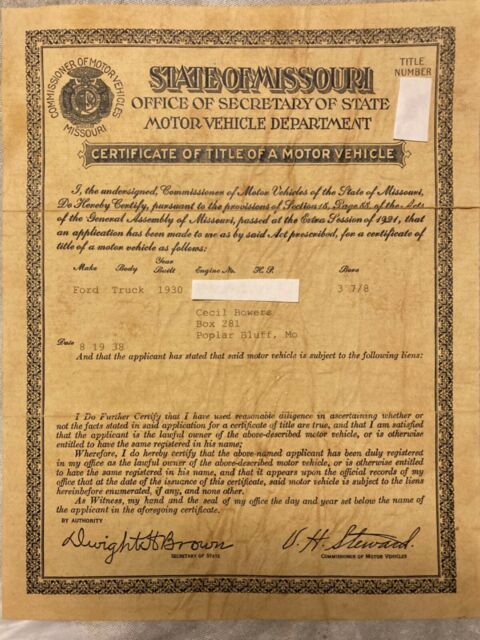 COMMISSIONER OF MOTOR VEHICLES
MISSOURI
TITLE
NUMBER
STATE OF MISSOURI
OFFICE OF SECRETARY OF STATE
MOTOR VEHICLE DEPARTMENT
CERTIFICATE OF TITLE OF A MOTOR VEHICLE
I, the undersigned, Commissioner of Motor Vehicles of the State of Missouri,
Do Hereby Certify, pursuant to the provisions of Section 18, Page 88, of the Acts
of the General Assembly of Missouri, passed at the Extra Session of 1921, that
an application has been made to me as by said Act prescribed, for a certificate of
title of a motor vehicle as follows:
Make Body Year Built Engine No. H.P. Bore
Ford Truck 1930 3 7/8
Cecil Bowers
Box 281
Poplar Bluff, Mo
Date 8 19 38
And that the applicant has stated that said motor vehicle is subject to the following liens:
I Do Further Certify that I have used reasonable diligence in ascertaining whether or
not the facts stated in said application for a certificate of title are true, and that I am satisfied
that the applicant is the lawful owner of the above-described motor vehicle, or is otherwise
entitled to have the same registered in his name;
Wherefore, I do hereby certify that the above-named applicant has been duly registered
in my office as the lawful owner of the above-described motor vehicle, or is otherwise entitled
to have the same registered in his name, and that it appears upon the official records of my
office that at the date of the issuance of this certificate, said motor vehicle is subject to the liens
hereinbefore enumerated, if any, and none other.
As Witness, my hand and the seal of my office the day and year set below the name of
the applicant in the aforegoing certificate.
BY AUTHORITY
Dwight H Brown
SECRETARY OF STATE
V. H. Steward
COMMISSIONER OF MOTOR VEHICLES